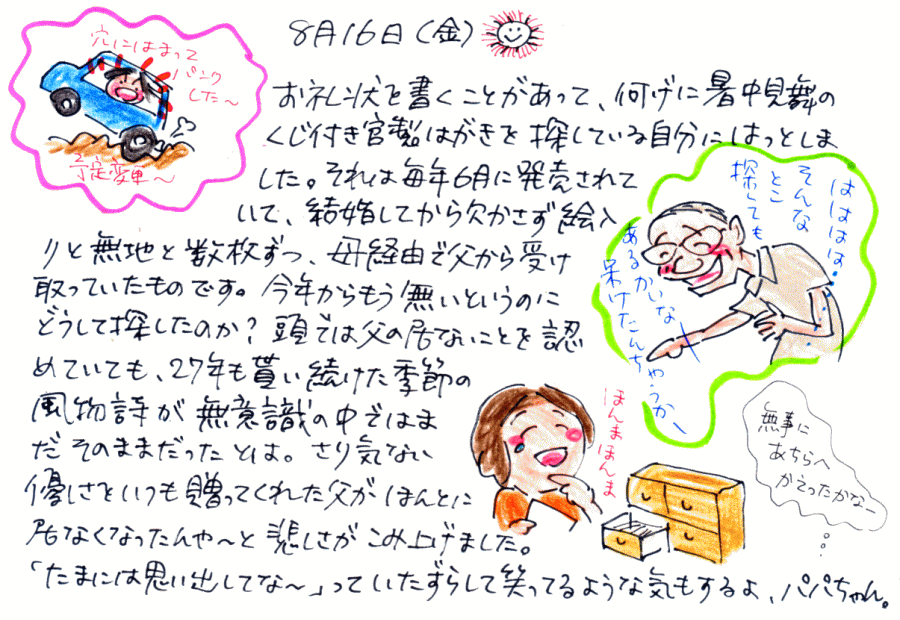 8月16日(金)
穴にはまって
パンク
した〜
予定変更〜
お礼状を書くことがあって、何げに暑中見舞の
くじ付き官製はがきを探している自分にはっとしま
した。それは毎年6月に発売されて
いて、結婚してから欠かさず絵入
りと無地と数枚ずつ、母経由で父から受け
取っていたものです。今年からもう無いというのに
どうして探したのか?頭では父の居ないことを認
めていても、27年も貰い続けた季節の
風物詩が無意識の中ではま
だそのままだったとは。さり気ない
優しさをいつも贈ってくれた父がほんとに
居なくなったんや〜と悲しさがこみ上げました。
「たまには思い出してな〜」っていたずらして笑ってるような気もするよ、パパちゃん。
はははは…
そんな
とこ
探しても
あるかいな
呆けたんちゃうか〜
ほんまほんま
無事に
あちらへ
かえったかなー